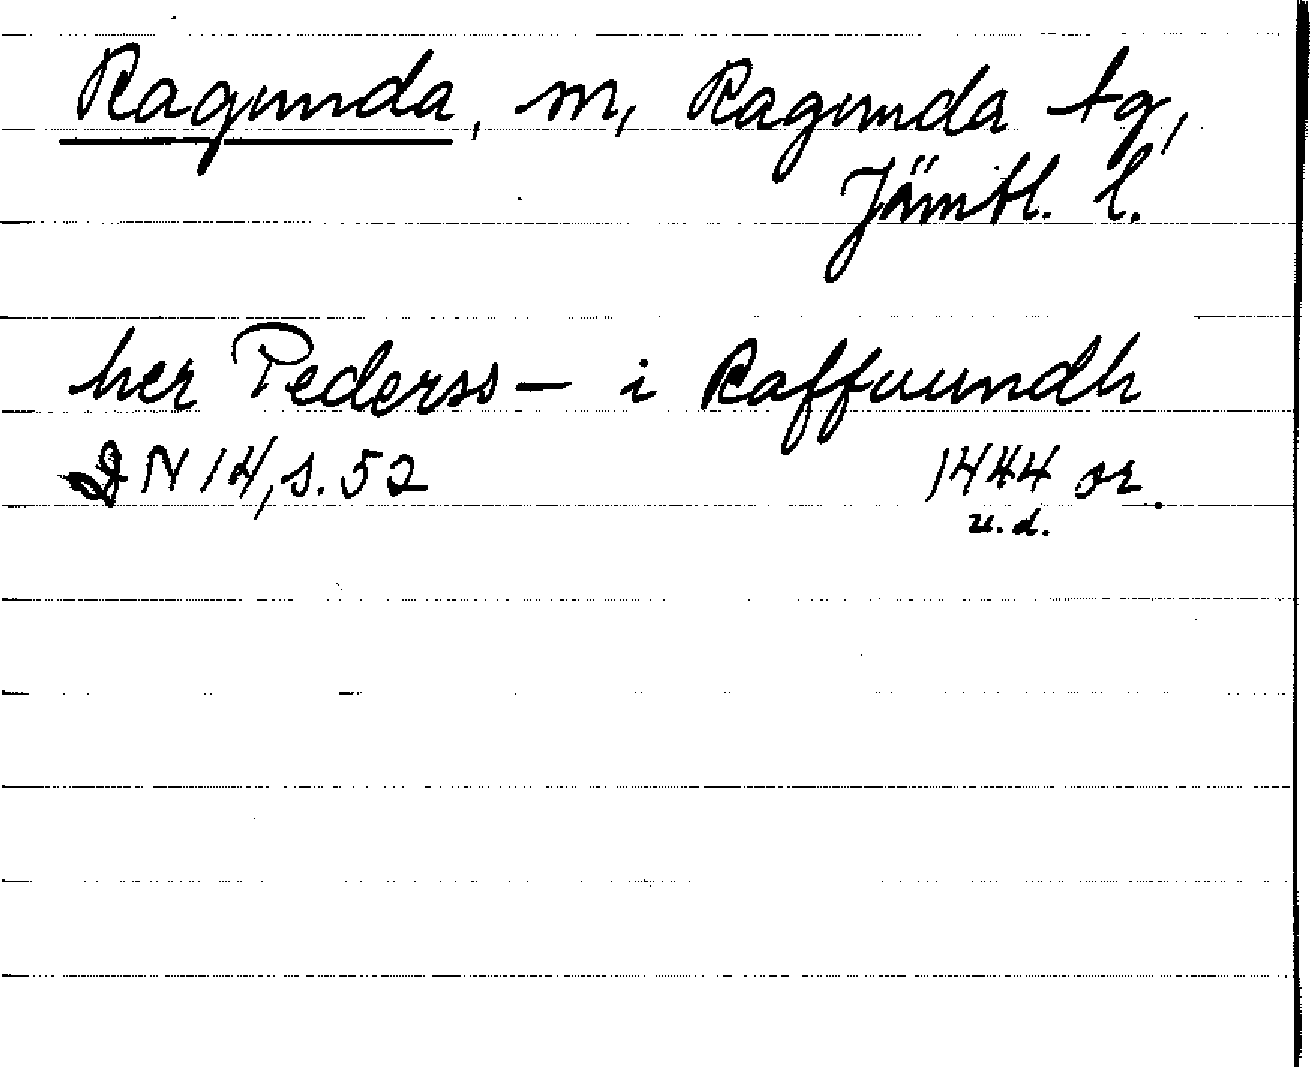 Ragunda, m, Ragunda tg,
Jämtl. l.
her Pederss – i Raffuundh
DN 14, s. 52 1444 or.
u. d.